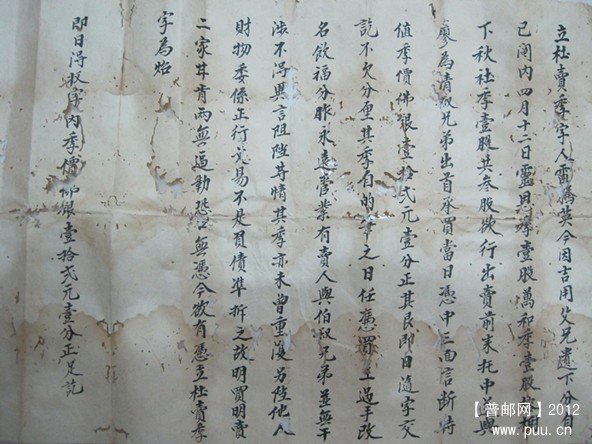 立杜賣季字人雷鳳英今因吉用父兄遺下分自
己闹内四月十二日靈 季壹股萬和季壹股
下秋社季壹股共叁股欲行出賣前来托中 與
廖為清叔兄弟出首承買當日憑中三面言断時
值季價佛銀壹拾弍元壹分正其艮即日隨字交
訖不欠分厘其季自 之日任憑買主過手改
名飲福分胙永遠管業有賣人與伯叔兄弟並無干
涉不得異言阻 等情其季亦未曾重 另 他人
財物委係正行交易不是買債準折之 明買明賣
二家甘肯兩無逼勒恐 無憑今欲有憑立杜賣季
字為炤
即日得 字内季價佛銀壹拾弍元壹分正足訖
【普邮网】2012
www.puu.cn